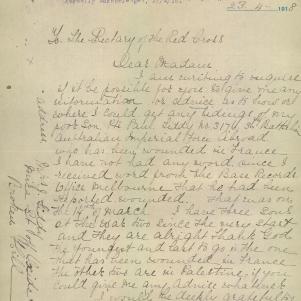 23-4-1918
To The Secretary of the Red Cross
Dear Madam
I am writing to enquire
if it be possible for you to give me any
information or advice as to how or
where I could get any tidings of my
poor Son, Pte Paul Liddy No 3170
Australian Imperial Force abroad
who has been wounded in France
I have not had any word since I
received word from the Base Records
Office Melbourne that he had been
reported wounded. That was on
the 14th of March. I have three Sons
at the War two since the very start
and they are alright thank God
the youngest and last to go is the one
that has been wounded in France
the other two are in Palestine, if you
could give me any advice whatever
would be deeply grateful
address
Liddy
Broken Hill